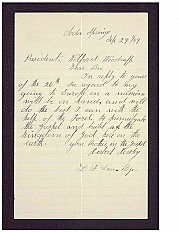 Soda Springs
Sep 29/89
President Wilford Woodruff
Dear Bro
In reply to yours
of the 26th in regard to my
going to Europe on a mission
will be on hand, and will
do the best I can with the
help of the Lord, to promulgate
the Gospel and build up the
Kingdom of God here on the
earth. your brother in the Gospel